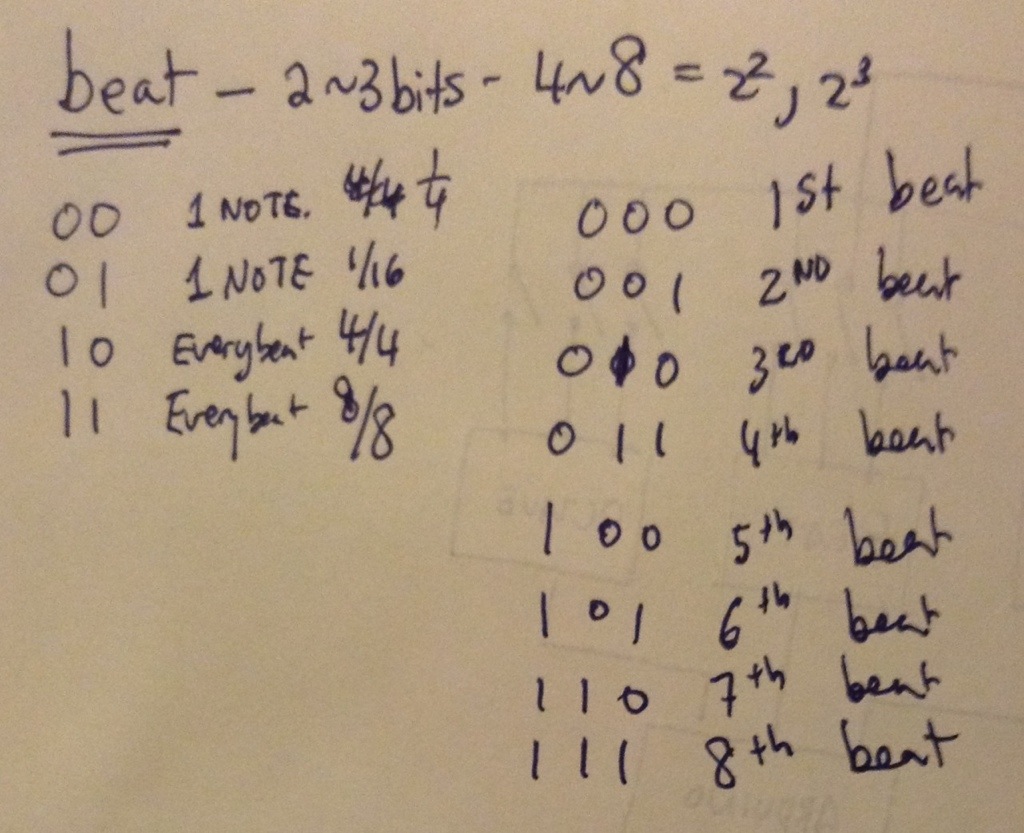 beat - 2~3bits - 4~8 = 2², 2³
00 1 NOTE. 1/4
01 1 NOTE 1/16
10 Everybeat 4/4
11 Everybeat 8/8
000 1st beat
001 2ND beat
010 3RD beat
011 4th beat
100 5th beat
101 6th beat
110 7th beat
111 8th beat